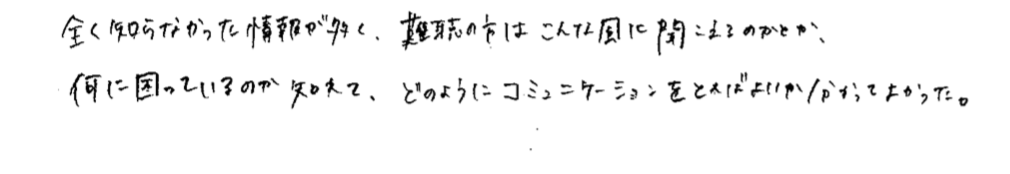 全く知らなかった情報が多く、難聴の方はこんな風に聞こえるのかとか、
何に困っているのか知れて、どのようにコミュニケーションをとればよいか分かってよかった。